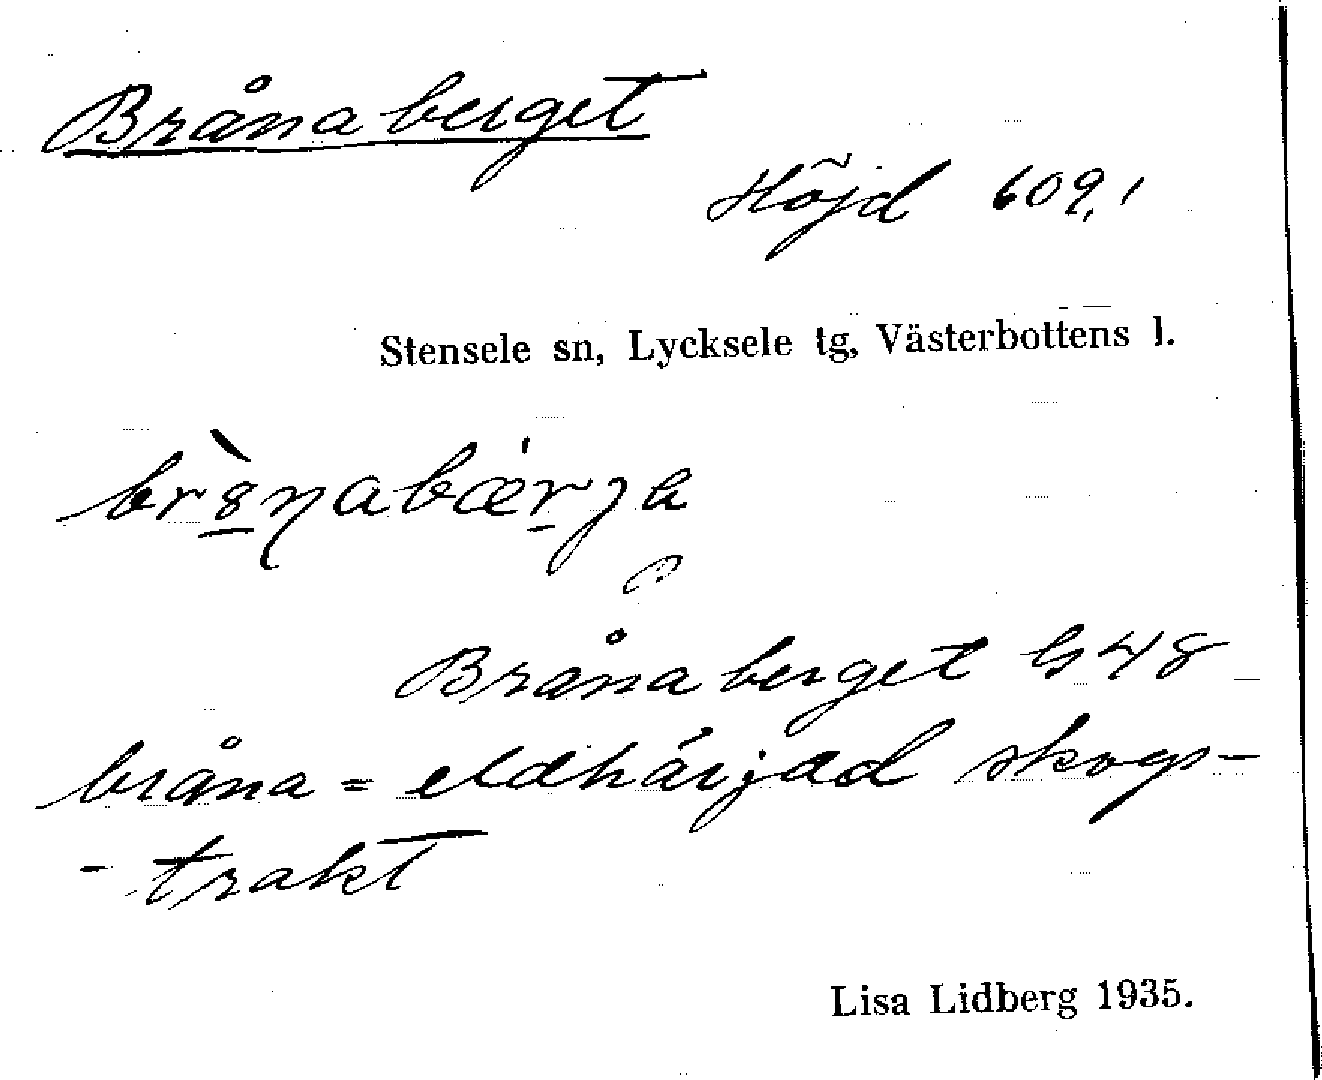 Brånaberget
Höjd 609,1
Stensele sn, Lycksele tg, Västerbottens l.
Brånaberget G48
bråna = eldhärjad skogs-
- trakt
Lisa Lidberg 1935.